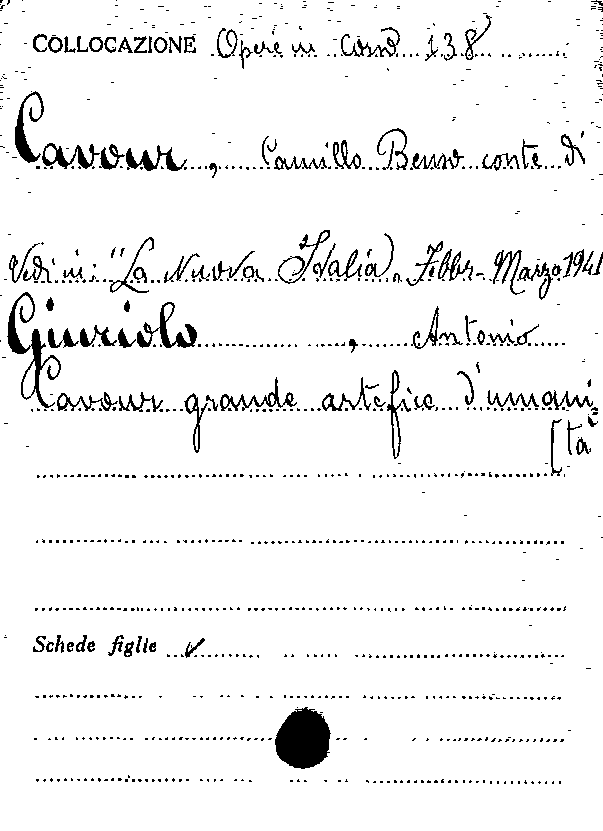 COLLOCAZIONE Opere in corso 138
Cavour, Camillo Benso conte di
Vedi in: "La Nuova Italia", Febbr-Marzo 1941
Giuriolo, Antonio
Cavour grande artefice d'umani=
[tà
Schede figlie ✓